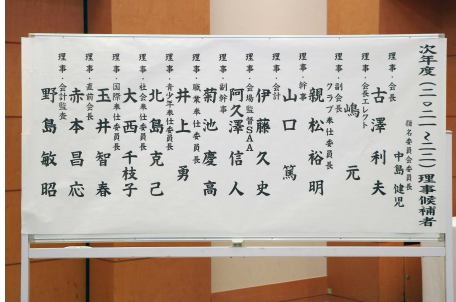 次年度(二〇二一~二二)理事候補者
指名委員会委員長
中島 健児
理事・会長
古澤 利夫
理事・会長エレクト
嶋 元
理事・副会長
クラブ奉仕委員長
親松 裕明
理事・幹事
山口 篤
理事・会計
伊藤 久史
理事・会場監督SAA
阿久澤 信人
理事・副幹事
菊池 慶高
理事・職業奉仕委員長
井上 勇
理事・青少年奉仕委員長
北島 克己
理事・社会奉仕委員長
大西 千枝子
理事・国際奉仕委員長
玉井 智春
理事・直前会長
赤本 昌応
理事・会計監査
野島 敏昭